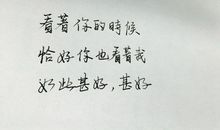 看著你的時候
恰好你也看着我
如此甚好，甚好